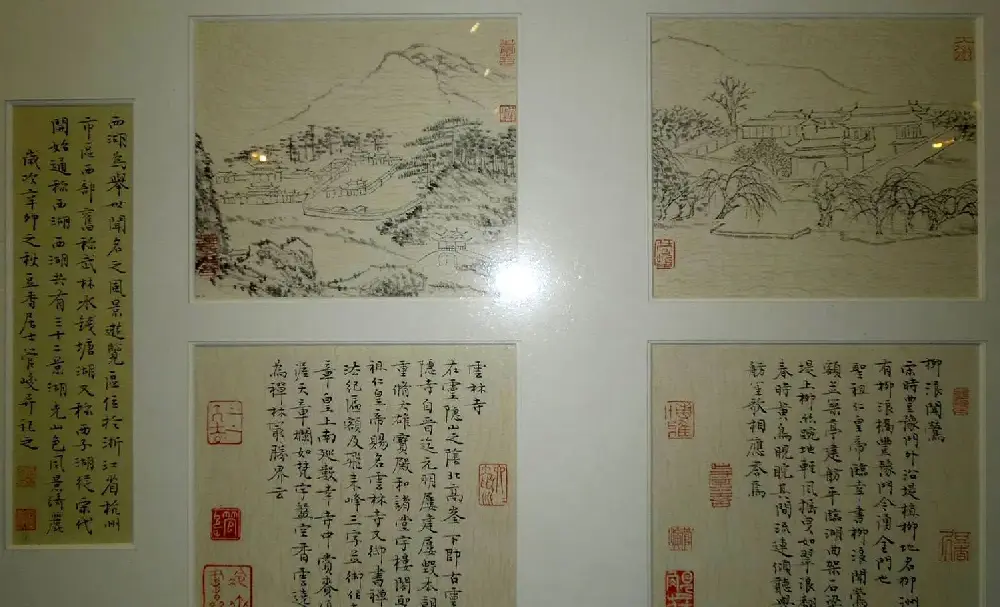 西湖為舉世聞名之風景遊覽區位於浙江省杭州
市區西部舊称武林水錢塘湖又称西子湖從宋代
開始通称西湖西湖共有三十二景湖光山色風景綺麗
歲次辛卯之秋豆香居士管峻并記之
雲林寺
在靈隱山之陰北高峯下即古靈
隱寺自晉迄元明屢建屢毀本朝
重脩大雄寶殿和諸堂宇樓閣聖
祖仁皇帝賜名雲林寺又御書禅
法紀匾額及飛来峰三字並御
章皇上南巡數幸寺中賞賚
天章爛如梵宇嚴空香雲遠
為禅林最勝界云
柳浪聞鶯
宋時豐豫門外沿堤植柳地名柳洲
有柳浪橋豐豫門今湧金門也
聖祖仁皇帝臨幸書柳浪聞鶯
額並築亭建舫平臨湖西架石梁
堤上柳絲地軒風搖曳如翠浪翻
春時黃鳥睍睆其間流連傾聽與
舫笙歌相應答焉